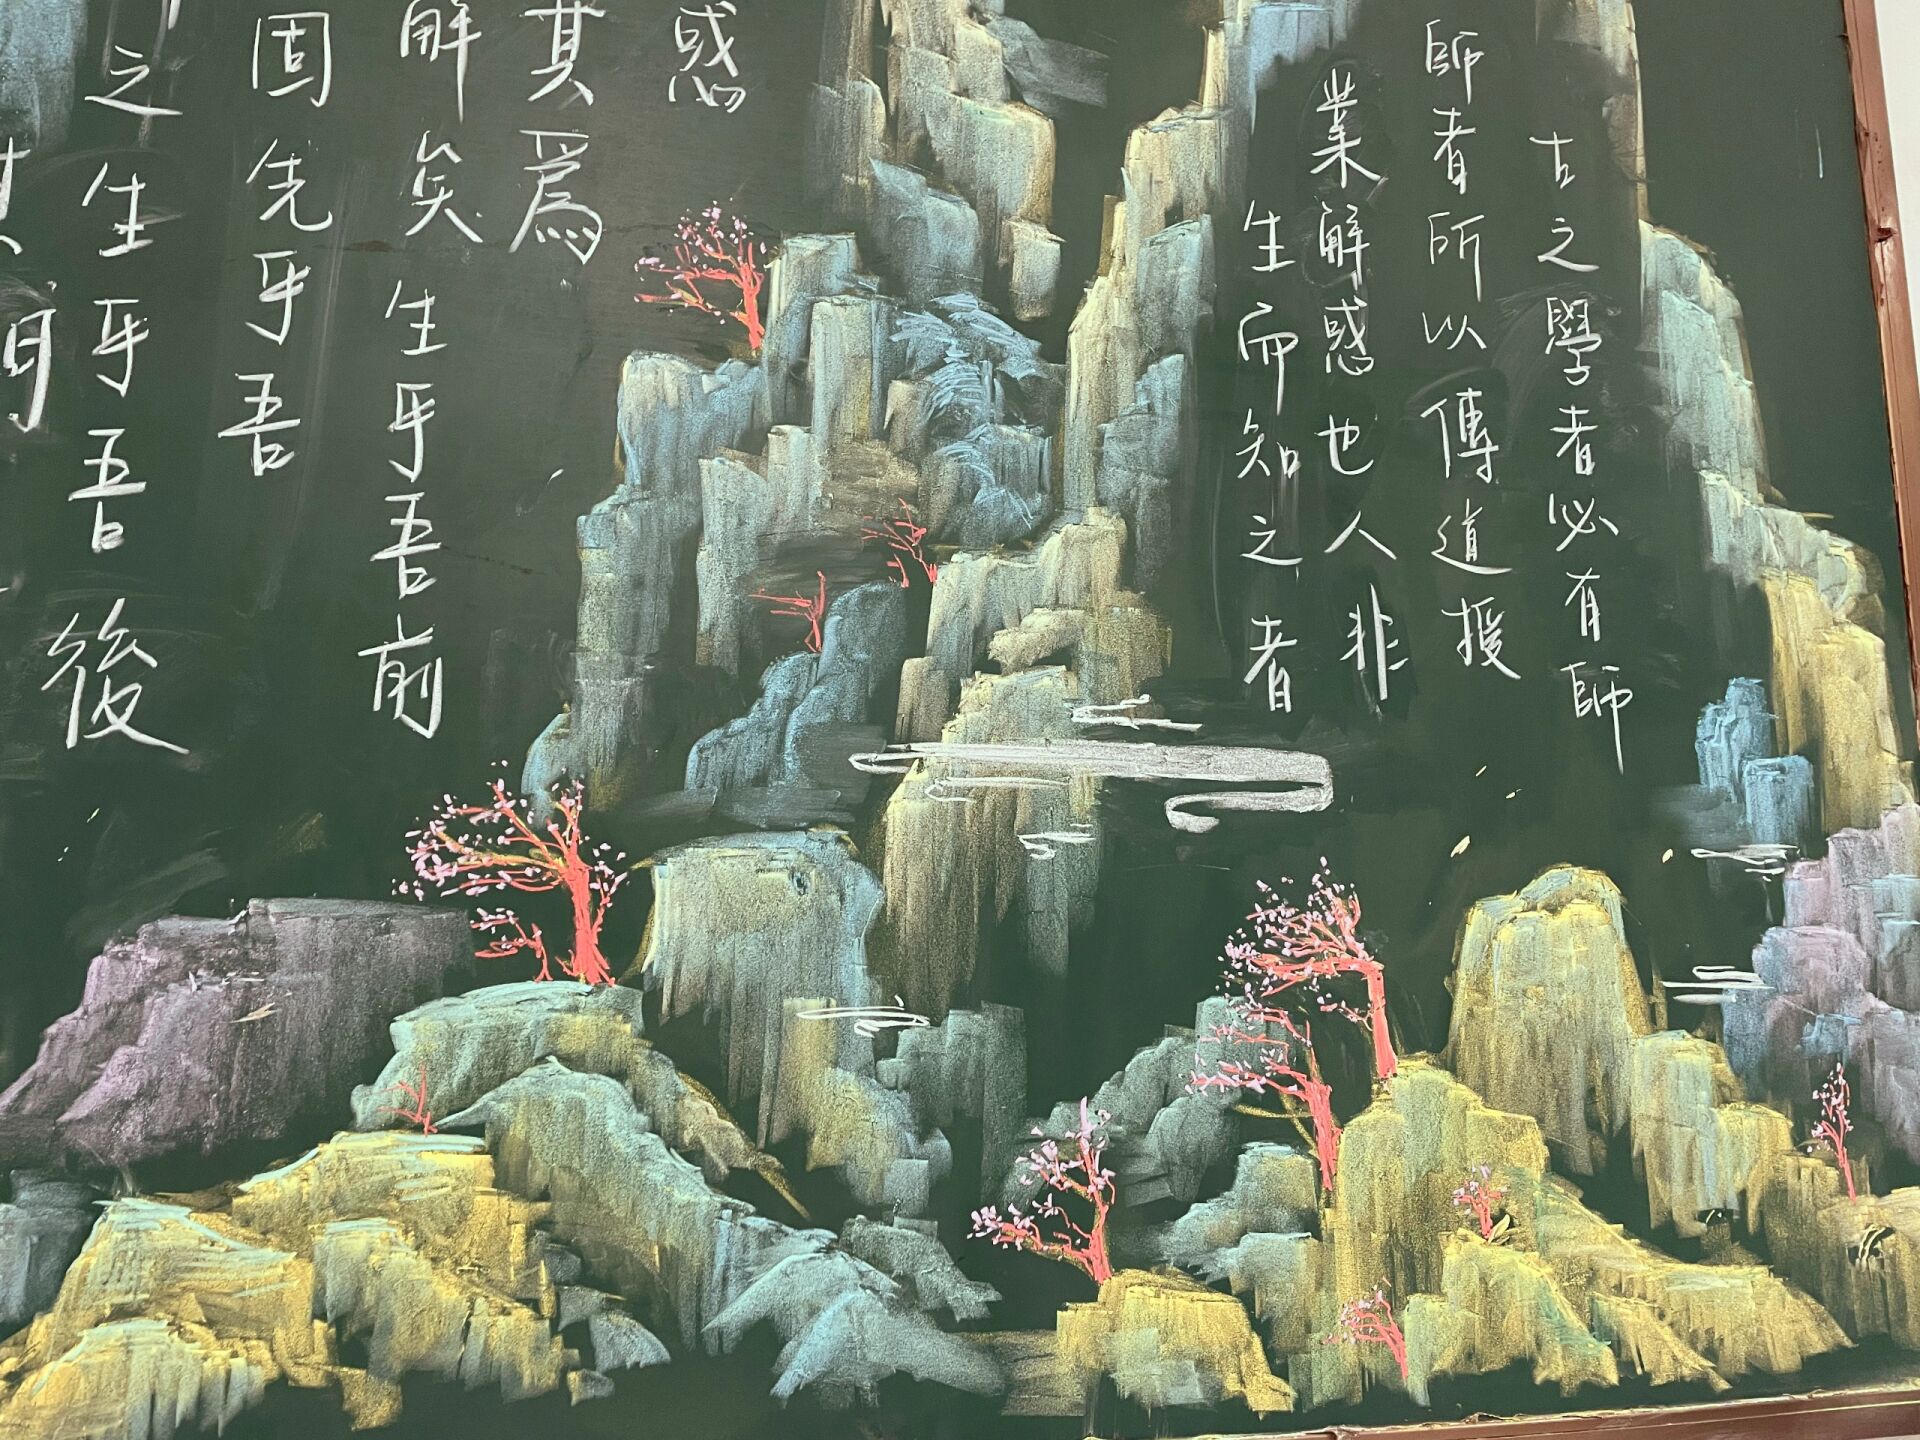 古之學者必有師
師者所以傳道授
業解惑也人非
生而知之者
惑
其爲
解矣生乎吾前
固先乎吾
之生乎吾後